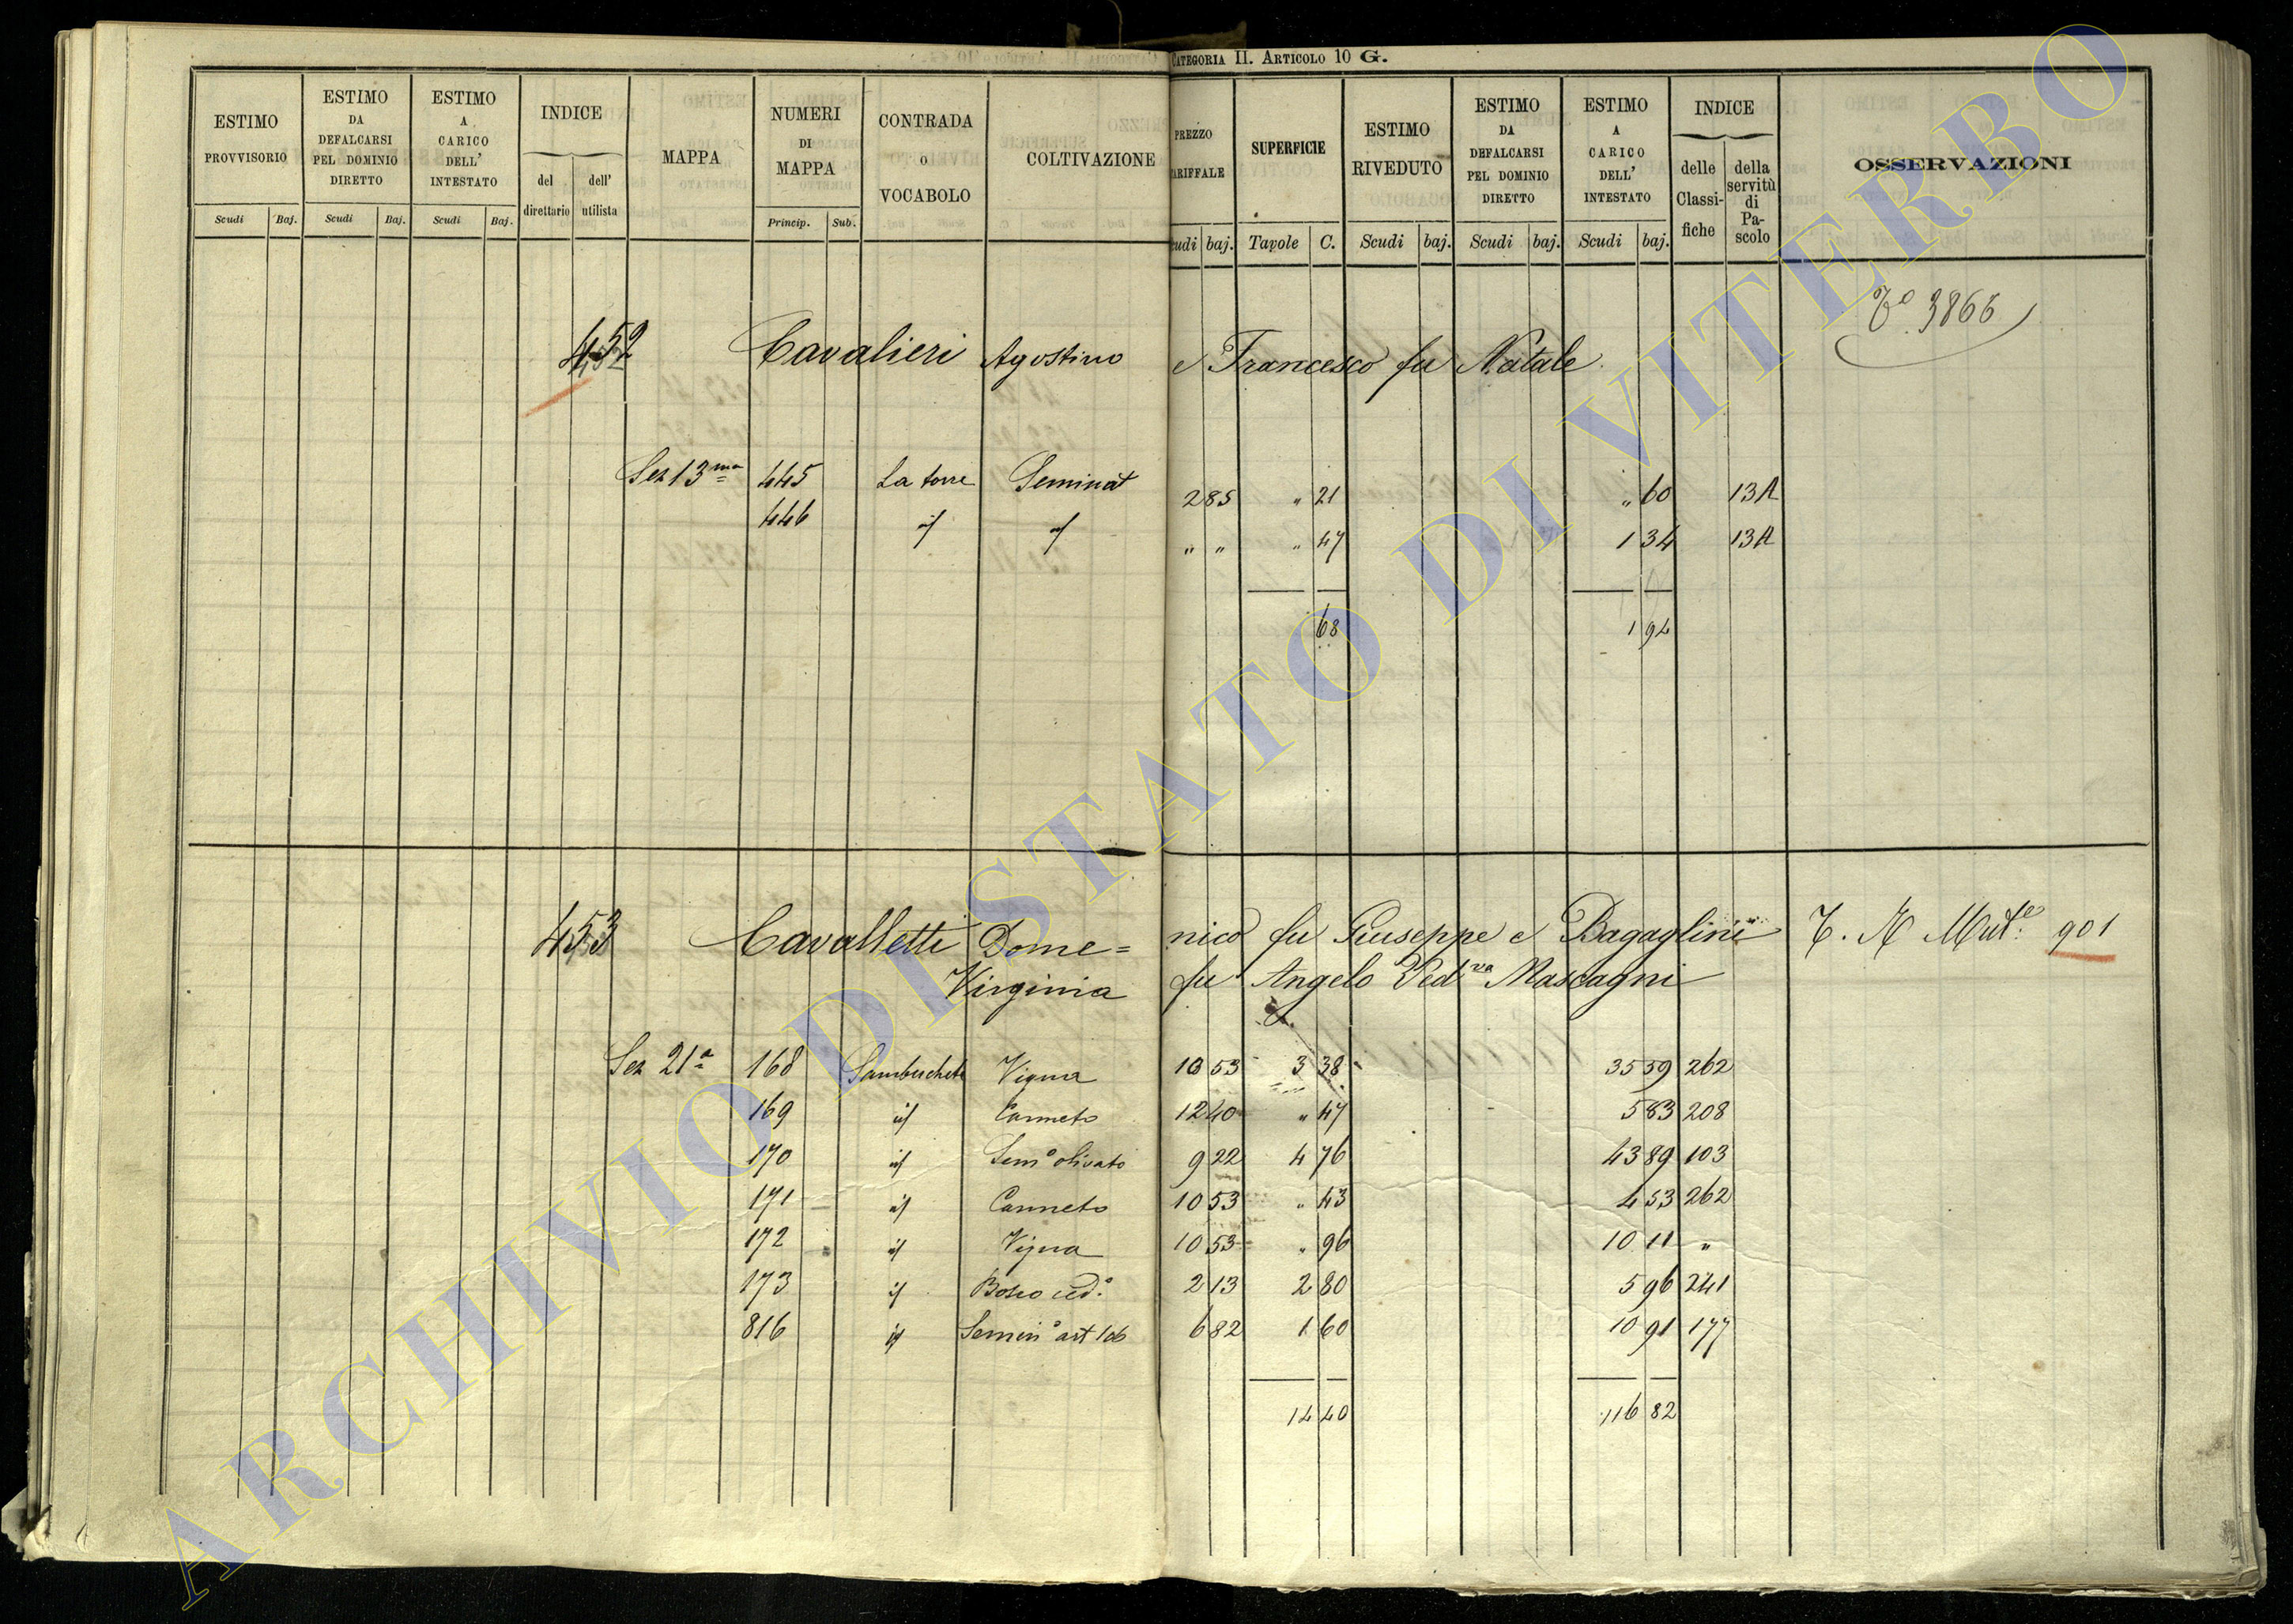 CATEGORIA II. ARTICOLO 10 G.
ESTIMO PROVVISORIO
ESTIMO DA DEFALCARSI PEL DOMINIO DIRETTO
ESTIMO A CARICO DELL' INTESTATO
INDICE
del direttario
dell' utilista
MAPPA
NUMERI DI MAPPA
CONTRADA O VOCABOLO
COLTIVAZIONE
PREZZO
SUPERFICIE
ESTIMO RIVEDUTO
ESTIMO DA DEFALCARSI PEL DOMINIO DIRETTO
ESTIMO A CARICO DELL' INTESTATO
INDICE
delle Classi-fiche
della servitù di Pa-scolo
OSSERVAZIONI
Scudi Baj. Scudi Baj. Scudi Baj. Princip. Sub.
baj. Tavole C. Scudi baj. Scudi baj. Scudi baj.
3866
452 Cavalieri Agostino e Francesco fu Natale
Sez 13ma 445 La torre Seminat 2 85 " 21 " 60 13A
446 id id " " " 47 1 34 13A
68 1 94
453 Cavalletti Dome= nico fu Giuseppe e Bagaglini T. N Mut.e 901
Virginia fu Angelo Ved.va Mascagni
Sez 21a 168 Sambuchete Vigna 10 53 3 38 35 59 262
169 id Canneto 12 40 " 47 5 83 208
170 id Sem° olivato 9 22 4 76 43 89 103
171 id Canneto 10 53 " 43 4 53 262
172 id Vigna 10 53 " 96 10 11 "
173 id Bosco ced.° 2 13 2 80 5 96 241
816 id Semin° art 106 6 82 1 60 10 91 177
14 40 116 82
ARCHIVIO DI STATO DI VITERBO